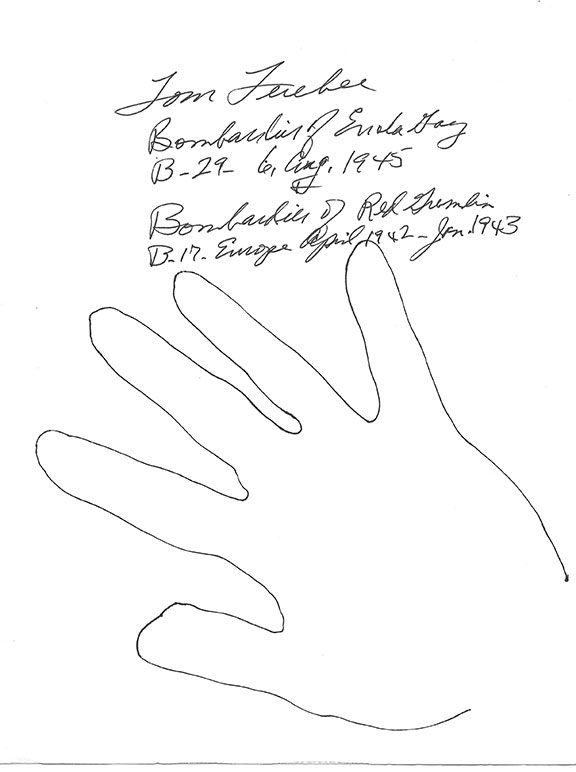 Tom Ferebee
Bombardier of Enola Gay
B-29- 6, Aug. 1945
Bombardier of Red Gremlin
B-17- Europe April 1942-Jan. 1943